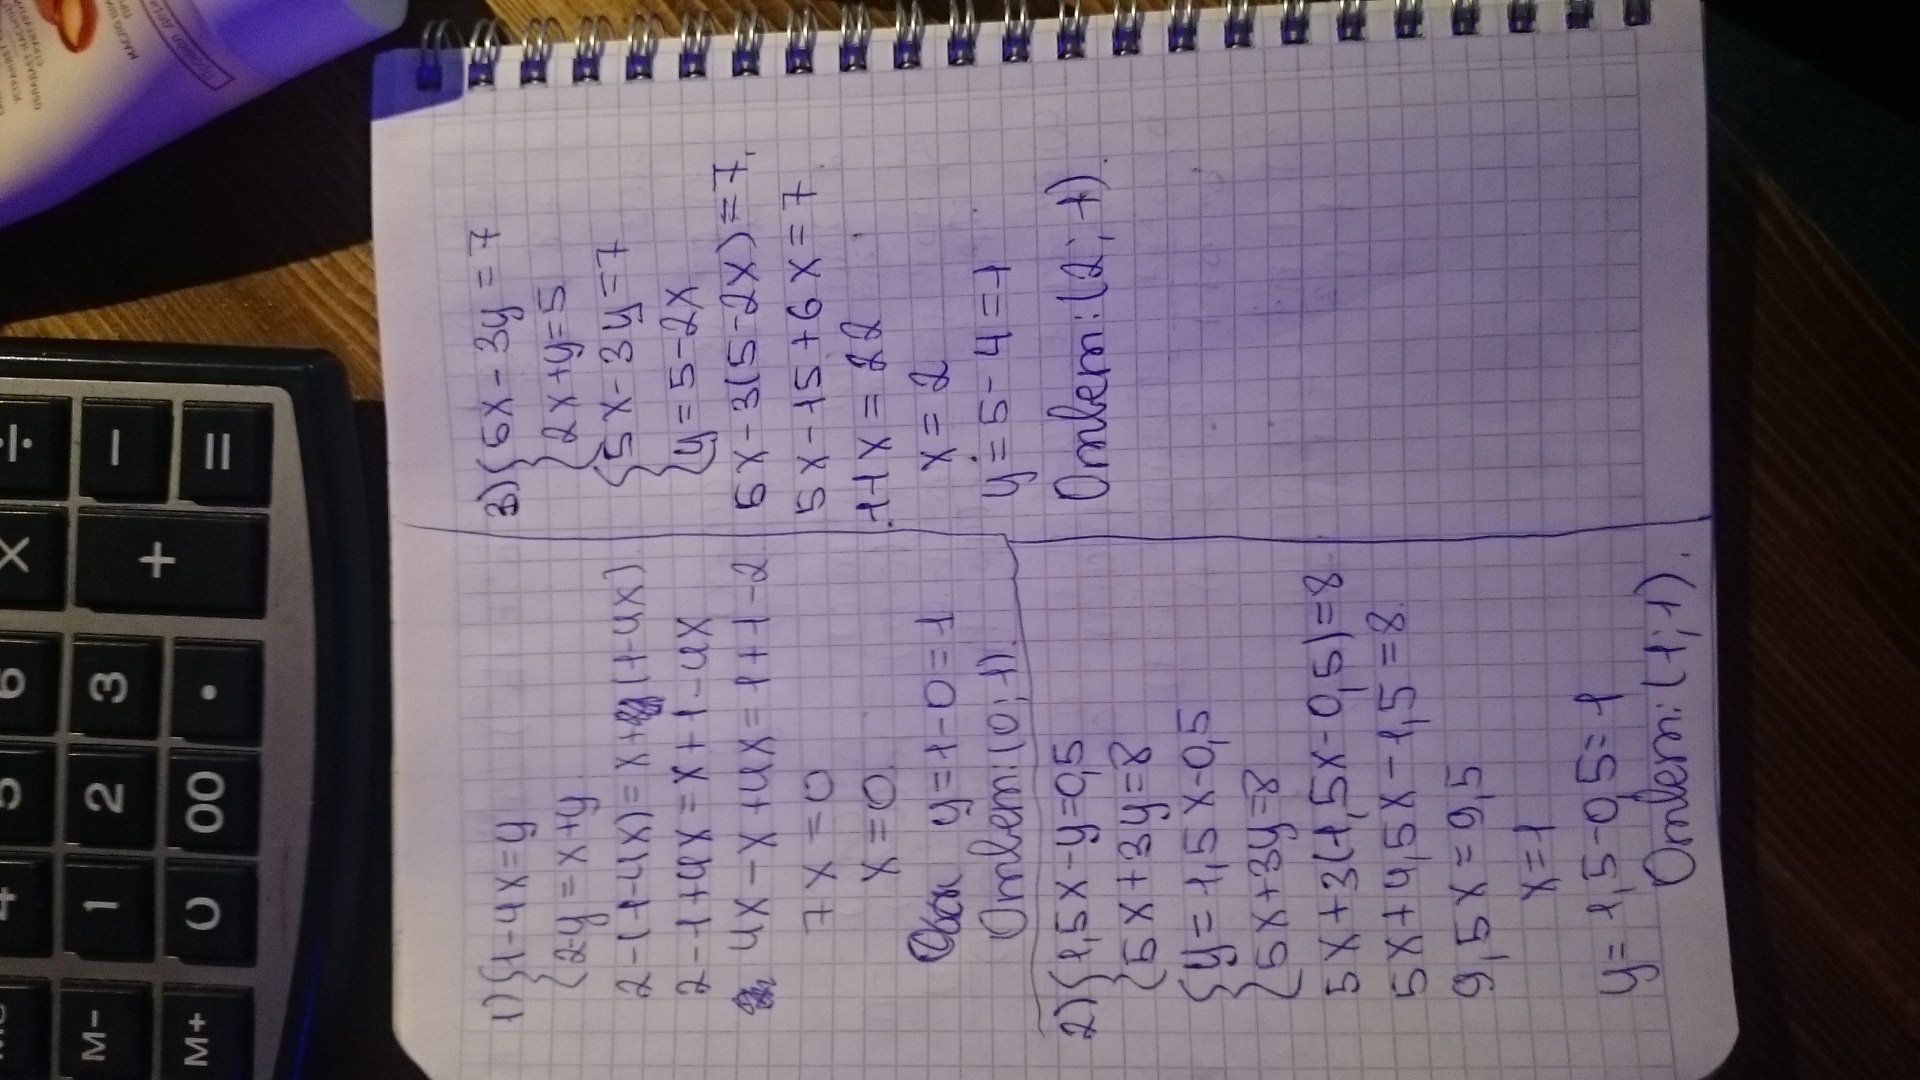 1) { 1-4x=y
2-y=x+y
2-(1-4x)=x+(1-4x)
2-1+4x=x+1-4x
4x-x+4x=1+1-2
7x=0
x=0
y=1-0=1
Ответ: (0; 1).
2) { 1,5x-y=0,5
5x+3y=8
{ y=1,5x-0,5
5x+3y=8
5x+3(1,5x-0,5)=8.
5x+4,5x-1,5=8.
9,5x=9,5
x=1
y=1,5-0,5=1
Ответ: (1; 1).
3) { 5x-3y=7
2x+y=5
{ 5x-3y=7
y=5-2x
5x-3(5-2x)=7.
5x-15+6x=7.
11x=22
x=2
y=5-4=1
Ответ: (2; 1).
÷
X
-
+
=
6
5
4
3
2
1
•
00
0
M-
M+